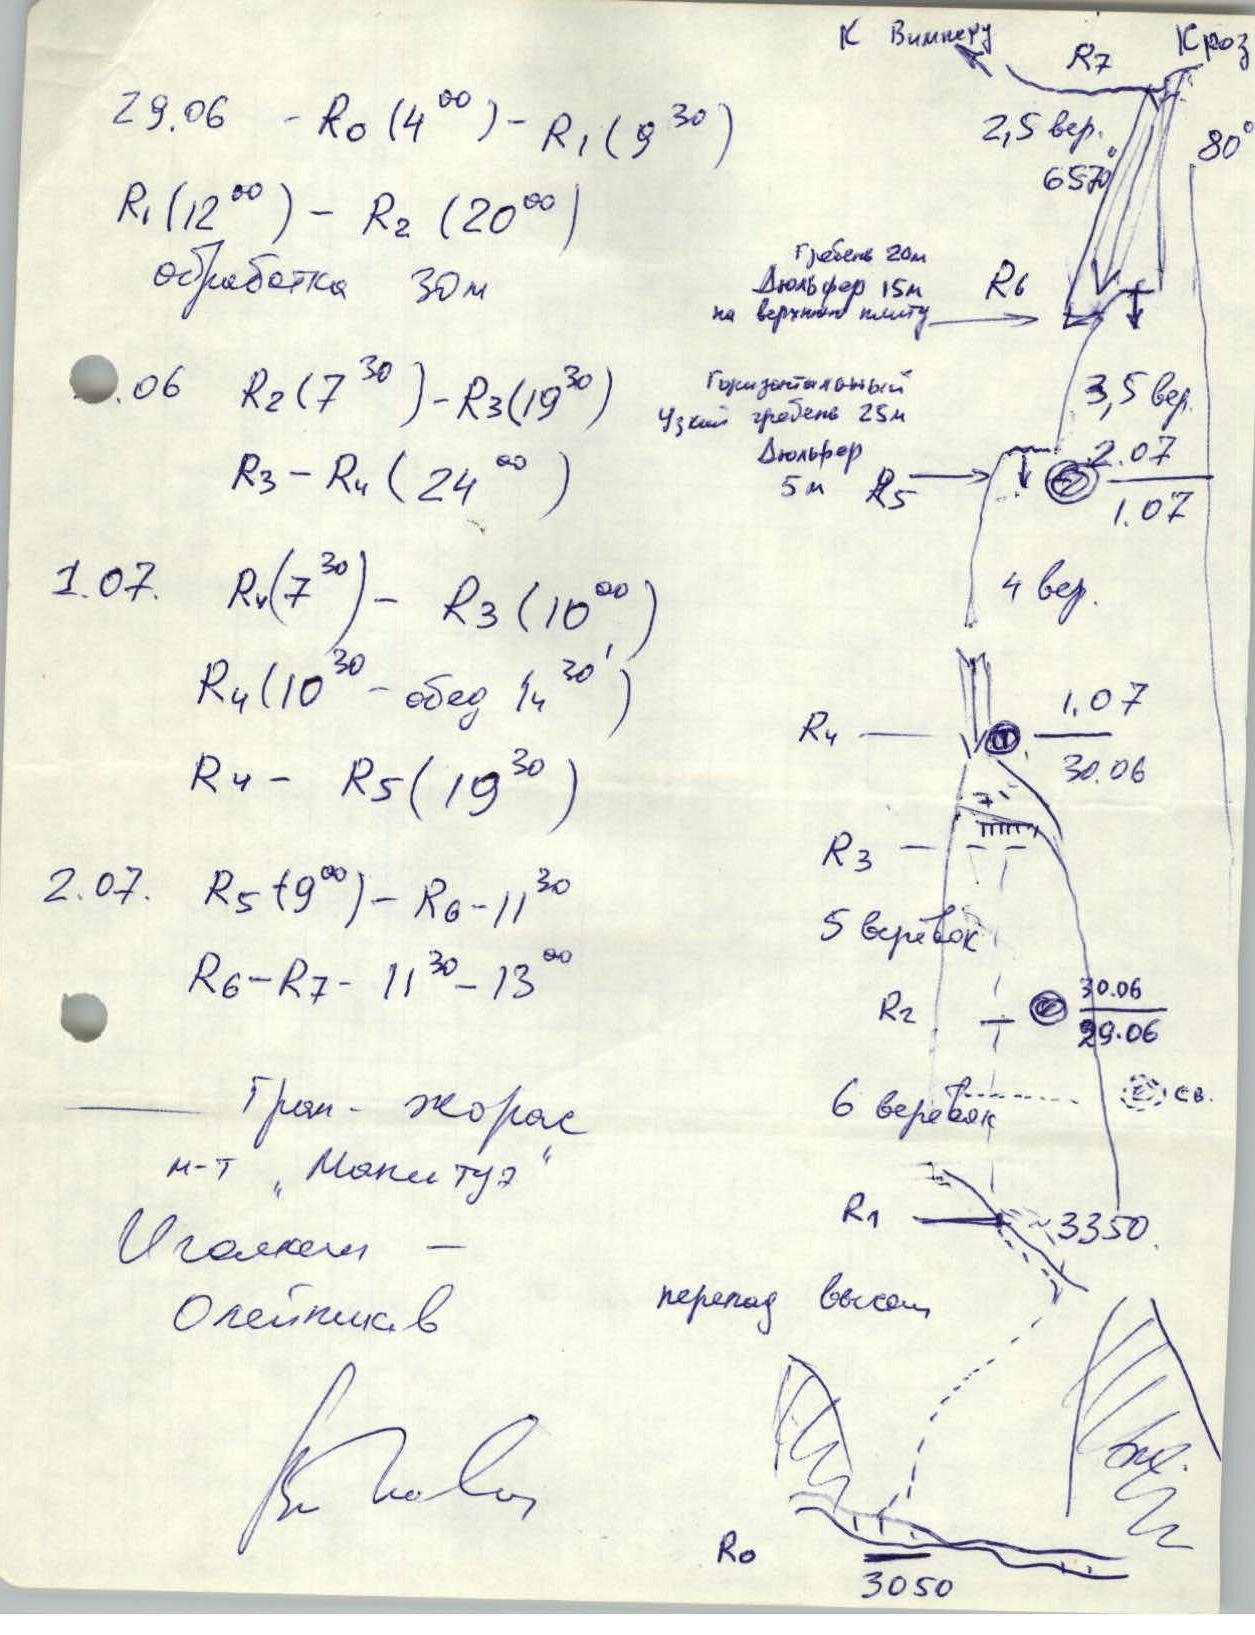 29.06 - R0 (4⁰⁰) - R1 (9³⁰)
R1 (12⁰⁰) - R2 (20⁰⁰)
обработка 30м
.06 R2 (7³⁰) - R3 (19³⁰)
R3 - R4 (24⁰⁰)
1.07. R4 (7³⁰) - R3 (10⁰⁰)
R4 (10³⁰ - обед 14³⁰)
R4 - R5 (19³⁰)
2.07. R5 (9⁰⁰) - R6 - 11³⁰
R6 - R7 - 11³⁰ - 13⁰⁰
Гран - жорас
м-т „Маниту"
Олейников
К Вимперу
R7
Кроз
2,5 вер.
80°
Гребень 20м
Дюльфер 15м
на верхнюю плиту
R6
3,5 вер.
Горизонтальный
Узкий гребень 25м
Дюльфер
5м
R5
2.07
1.07
4 вер.
R4
1.07
30.06
R3
5 веревок
R2
30.06
29.06
6 веревок
св.
R1
~3350.
перепад высот
R0
3050